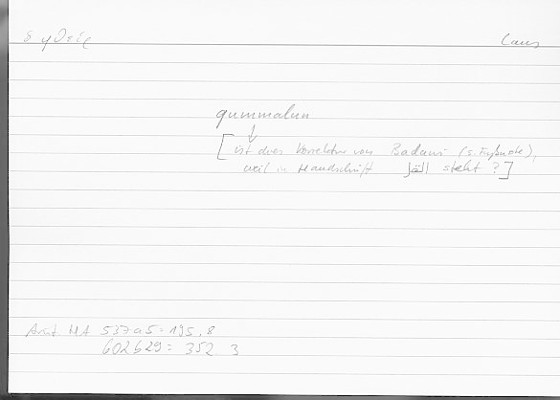 ὁ φθείρ
Laus
qummalun
↓
[ist dies Korrektur von Badawi (s. Fußnote),
weil in Handschrift القل steht?]
Arist. HA 537a5 = 195,8
602b29 = 352 3